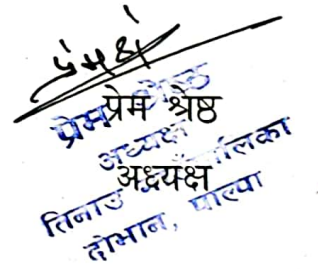 प्रेम श्रेष्ठ
अध्यक्ष
प्रेम श्रेष्ठ
अध्यक्ष
तिनाउ पालिका
दोभान, पाल्पा